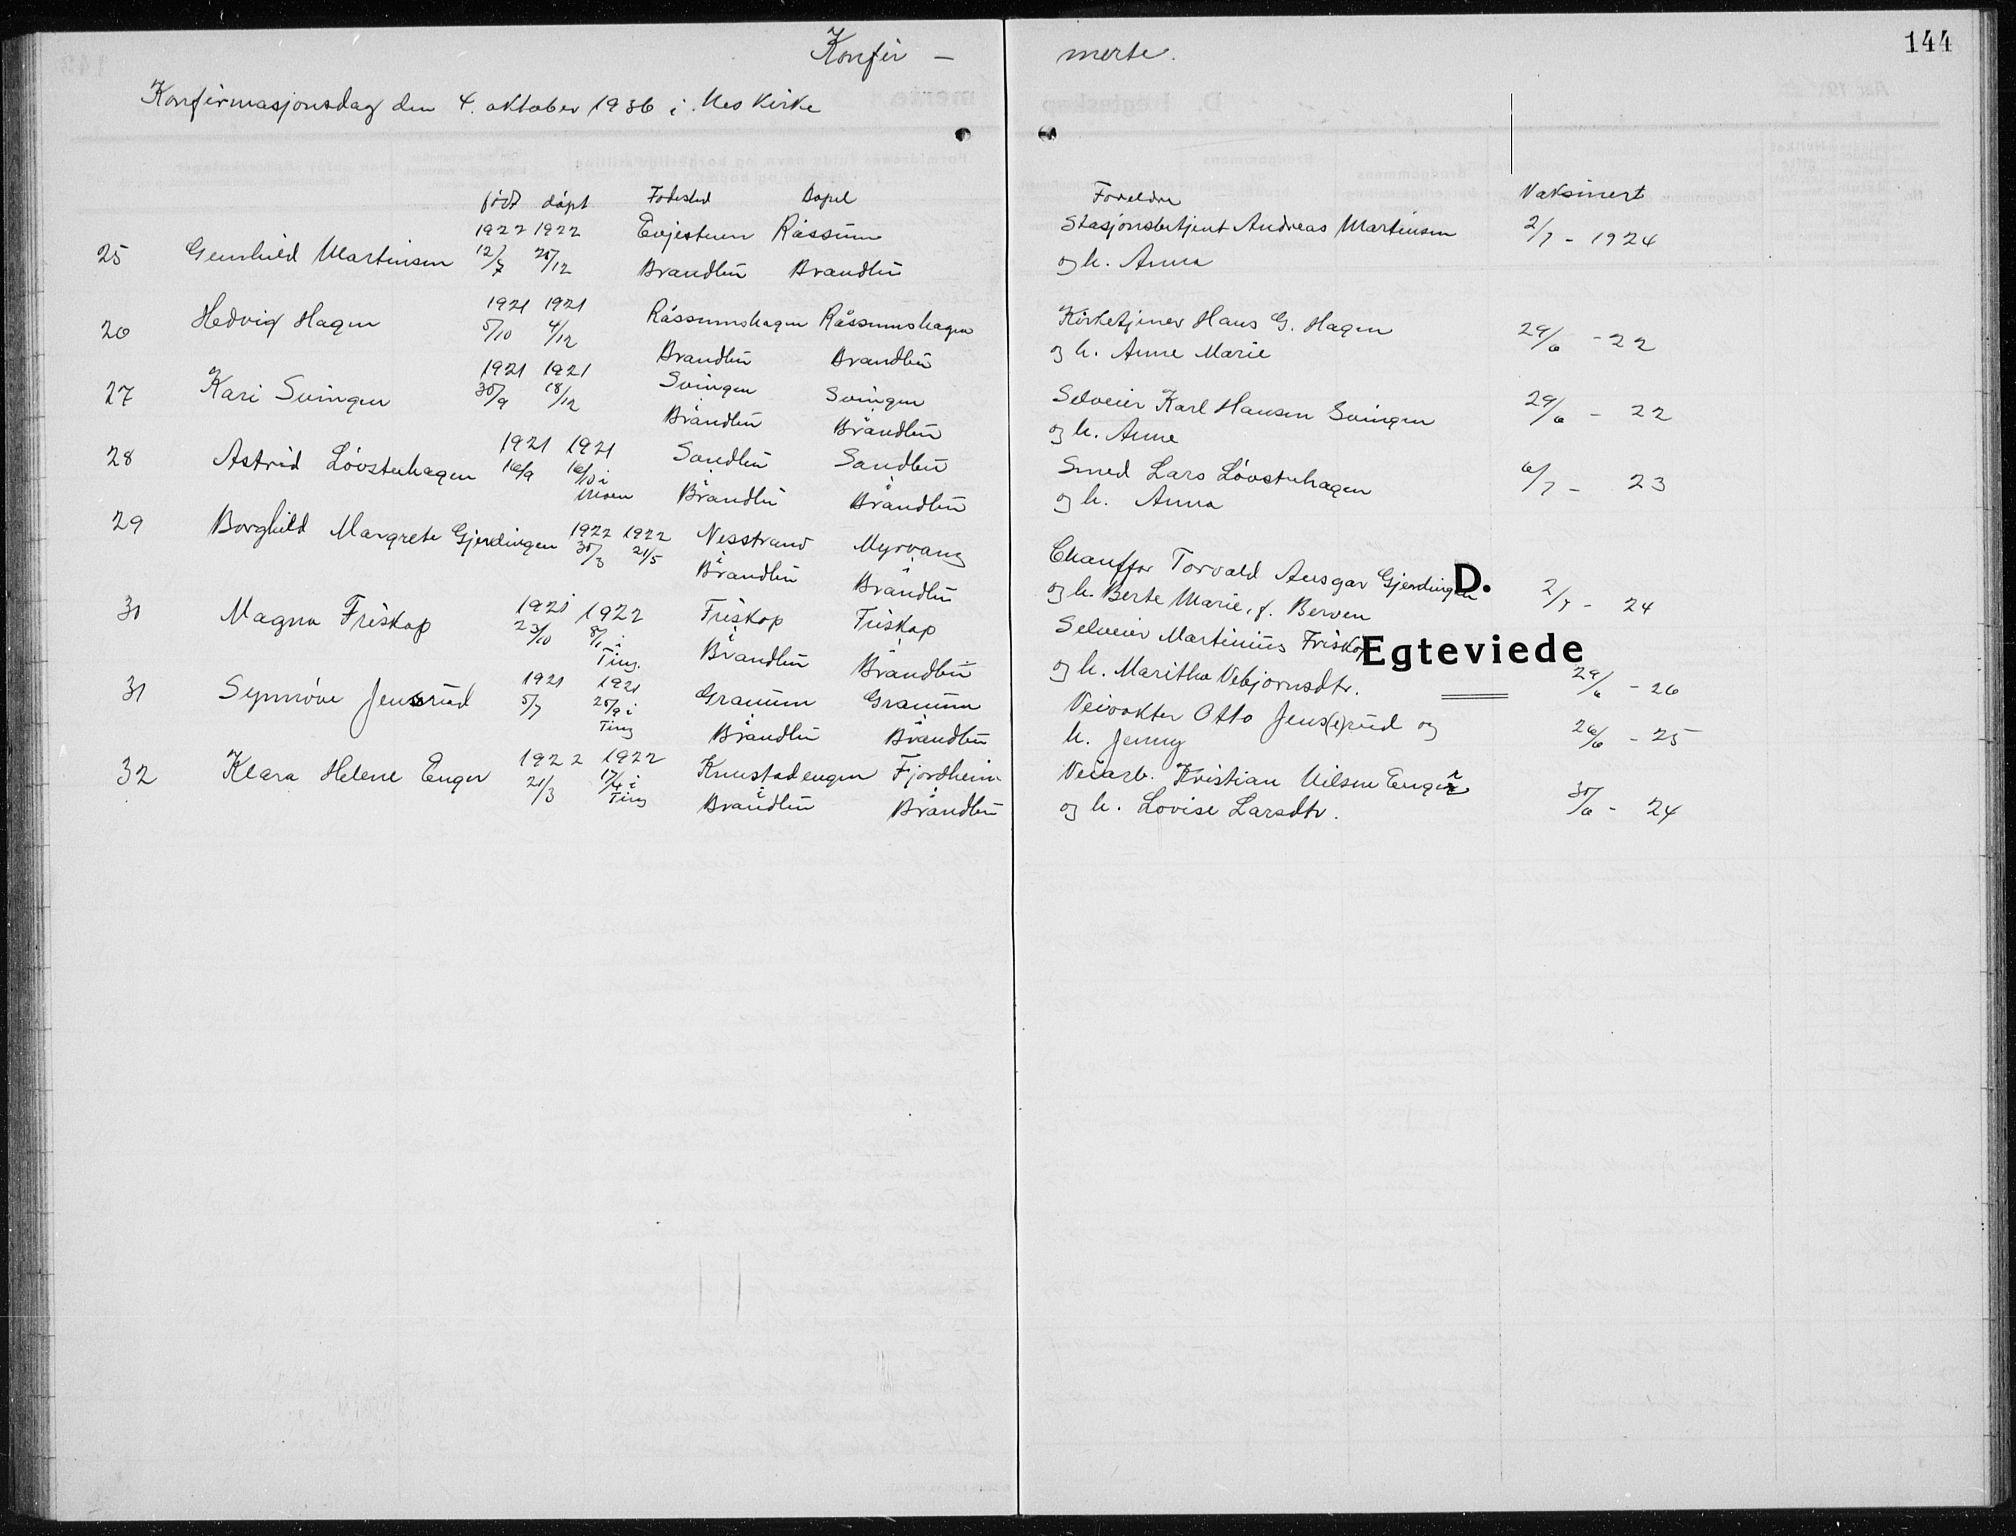 Konfir - merte.
144
Konfirmasjonsdag den 4. oktober 1936 i Nes kirke
født døpt Fødested Bopel Foreldre Vaksinert
1922 1922 Evjestuen Råssum Stasjonsbetjent Andreas Martinsen 2/7 - 1924
25 Gunhild Martinsen 12/7 25/12 Brandbu Brandbu og h. Anna
1921 1921 Råssumshagen Råssumshagen Kirketjener Haus G. Hagen 29/6 - 22
26 Hedvig Hagen 5/10 4/12 Brandbu Brandbu og h. Anne Marie
1921 1921 Svingen Svingen Selveier Karl Hansen Svingen 29/6 - 22
27 Kari Svingen 30/9 18/12 Brandbu Brandbu og h. Anne
1921 1921 Sandbu Sandbu Smed Lars Løvstuhagen 6/7 - 23
28 Astrid Løvstuhagen 16/9 16/10 i Moen Brandbu Brandbu og h. Anna
29 Borghild Margrete Gjerdingen 1922 1922 Nesstrand Myrvang Chauffør Torvald Ansgar Gjerdingen
30/3 21/5 Brandbu Brandbu og h. Berte Marie, f. Berven 2/7 - 24
D.
30 Magna Friskop 1921 1922 Friskop Friskop Selveier Martinius Friskop
23/10 8/1 i Ting. Brandbu Brandbu og h. Maritha Vebjørnsdtr. 29/6 - 26
Egteviede
31 Synnøve Jensrud 1921 1921 Granum Granum Veivokter Otto Jens(e)rud og
5/7 25/9 i Ting Brandbu Brandbu h. Jenny 26/6 - 25
32 Klara Helene Enger 1922 1922 Knustadengen Fjordheim Veiarb. Kristian Nilsen Enger
21/3 17/4 i Ting Brandbu Brandbu og h. Lovise Larsdtr. 30/6 - 24